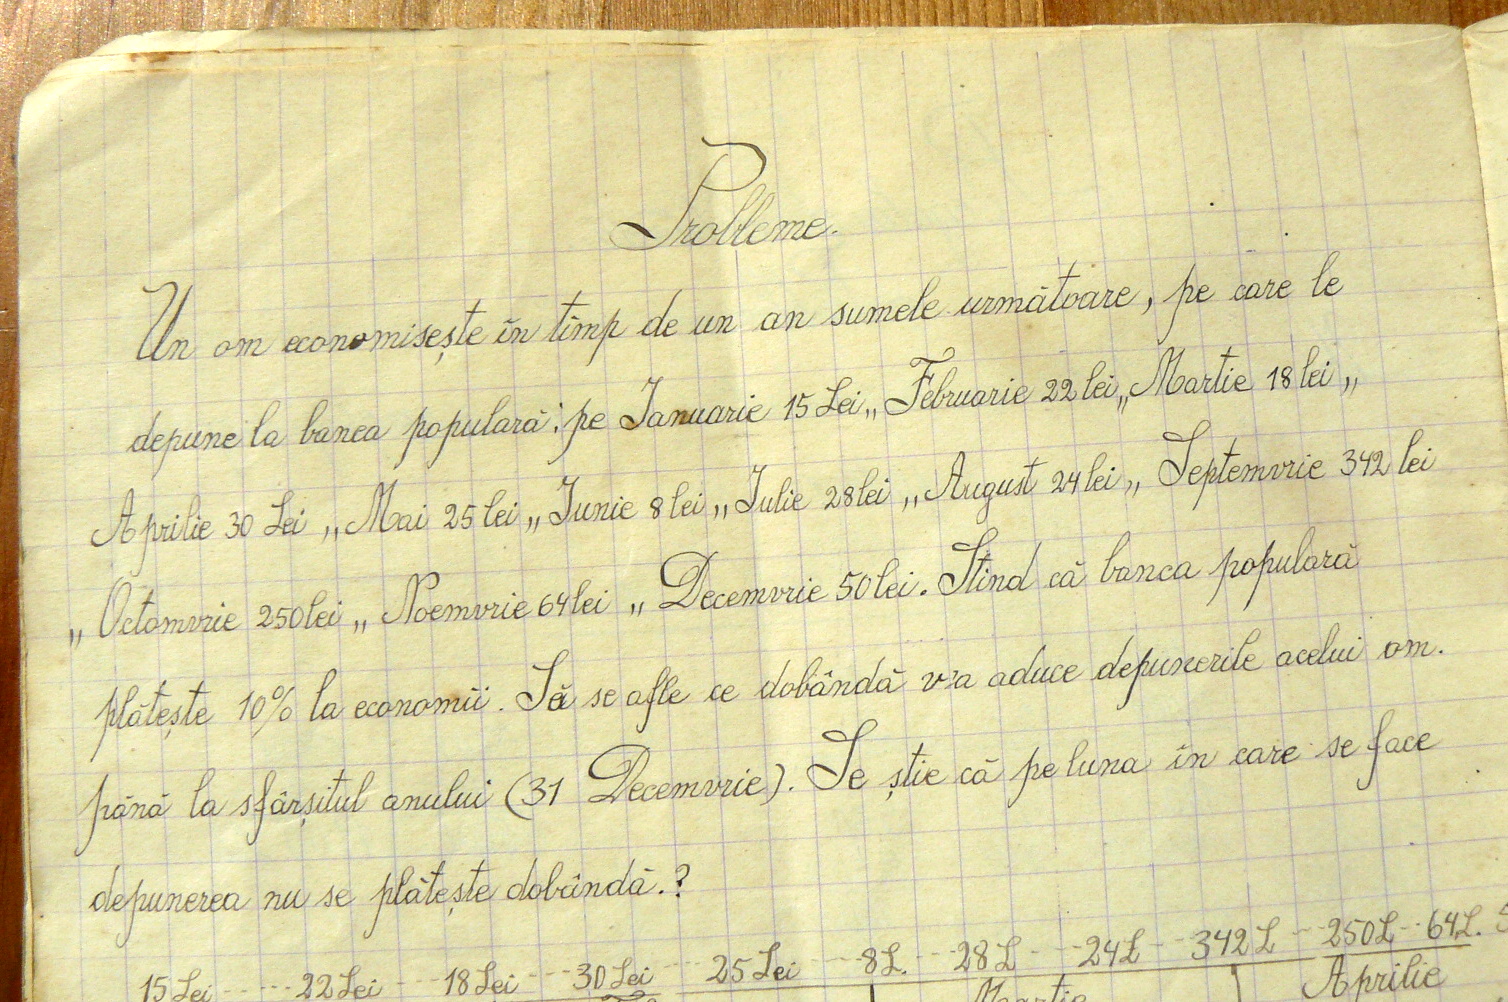 Probleme.
Un om economisește în timp de un an sumele următoare, pe care le
depune la banca populară: pe Ianuarie 15 Lei „ Februarie 22 lei „ Martie 18 lei „
Aprilie 30 Lei „ Mai 25 lei „ Iunie 8 lei „ Iulie 28 lei „ August 24 lei „ Septemvrie 342 lei
„ Octomvrie 250 lei „ Noemvrie 64 lei „ Decemvrie 50 lei. Știind că banca populară
plătește 10% la economii. Să se afle ce dobândă v'a aduce depunerile acelui om.
până la sfârșitul anului (31 Decemvrie). Se știe că pe luna în care se face
depunerea nu se plătește dobândă.?
15 Lei 22 Lei 18 Lei 30 Lei 25 Lei 8 L. 28 L 24 L 342 L 250 L 64 L.
Martie Aprilie